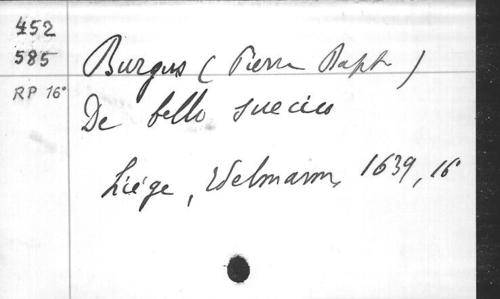 452
585
RP 16°
Burgus (Pierre Bapt.)
De bello suecico
Liége, Edelmann, 1639, 16°